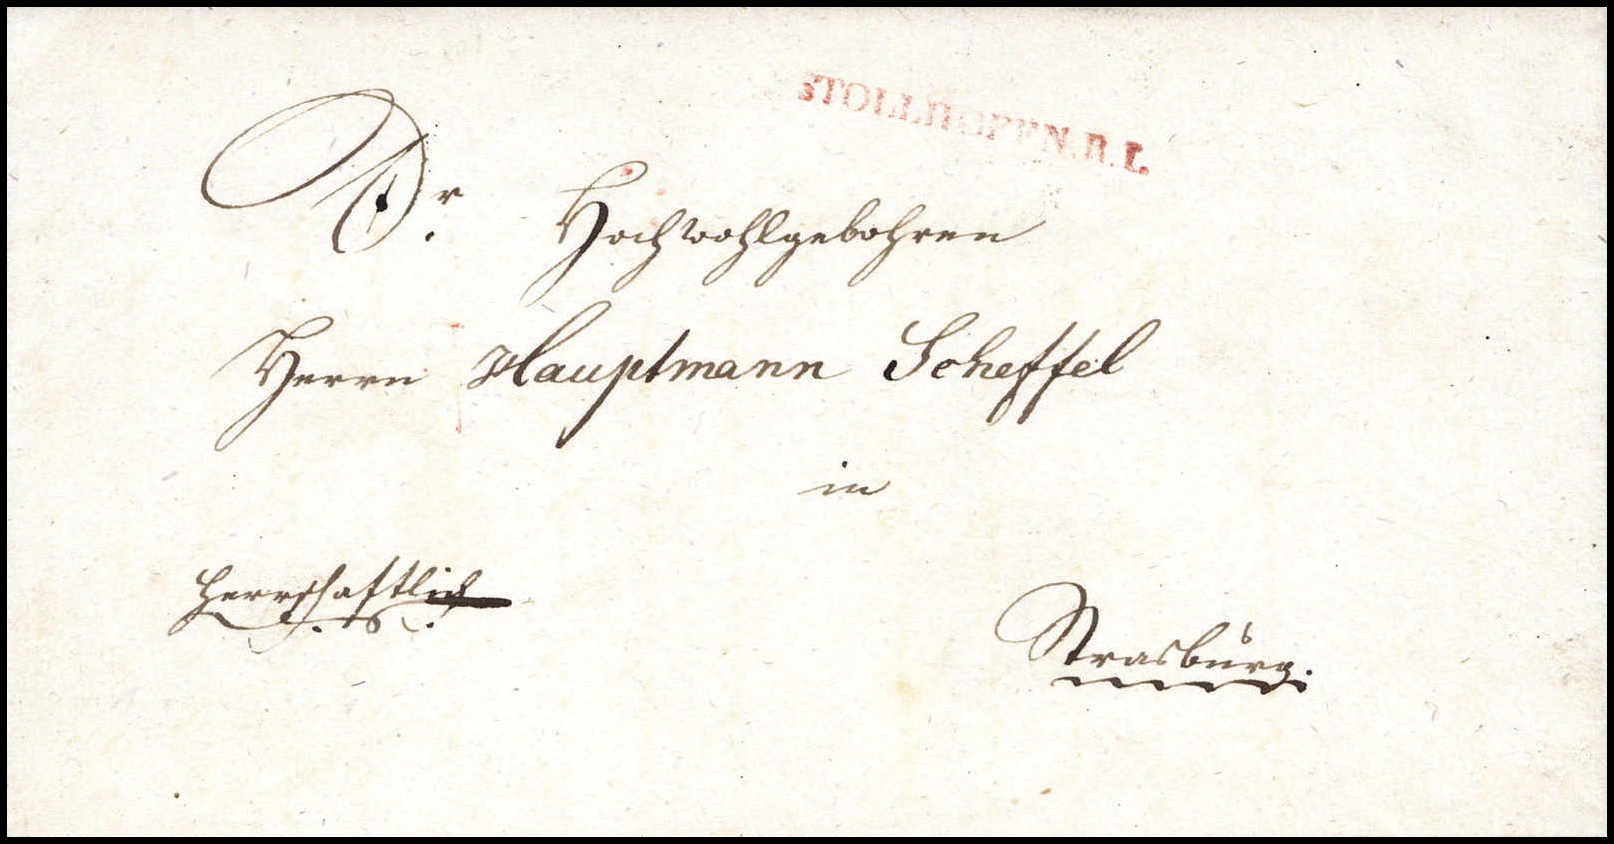 STOLLHOFEN.R.L.
Sr. Hochwohlgebohren
Herrn Hauptmann Scheffel
in
Herrschaftlich
Strasburg.